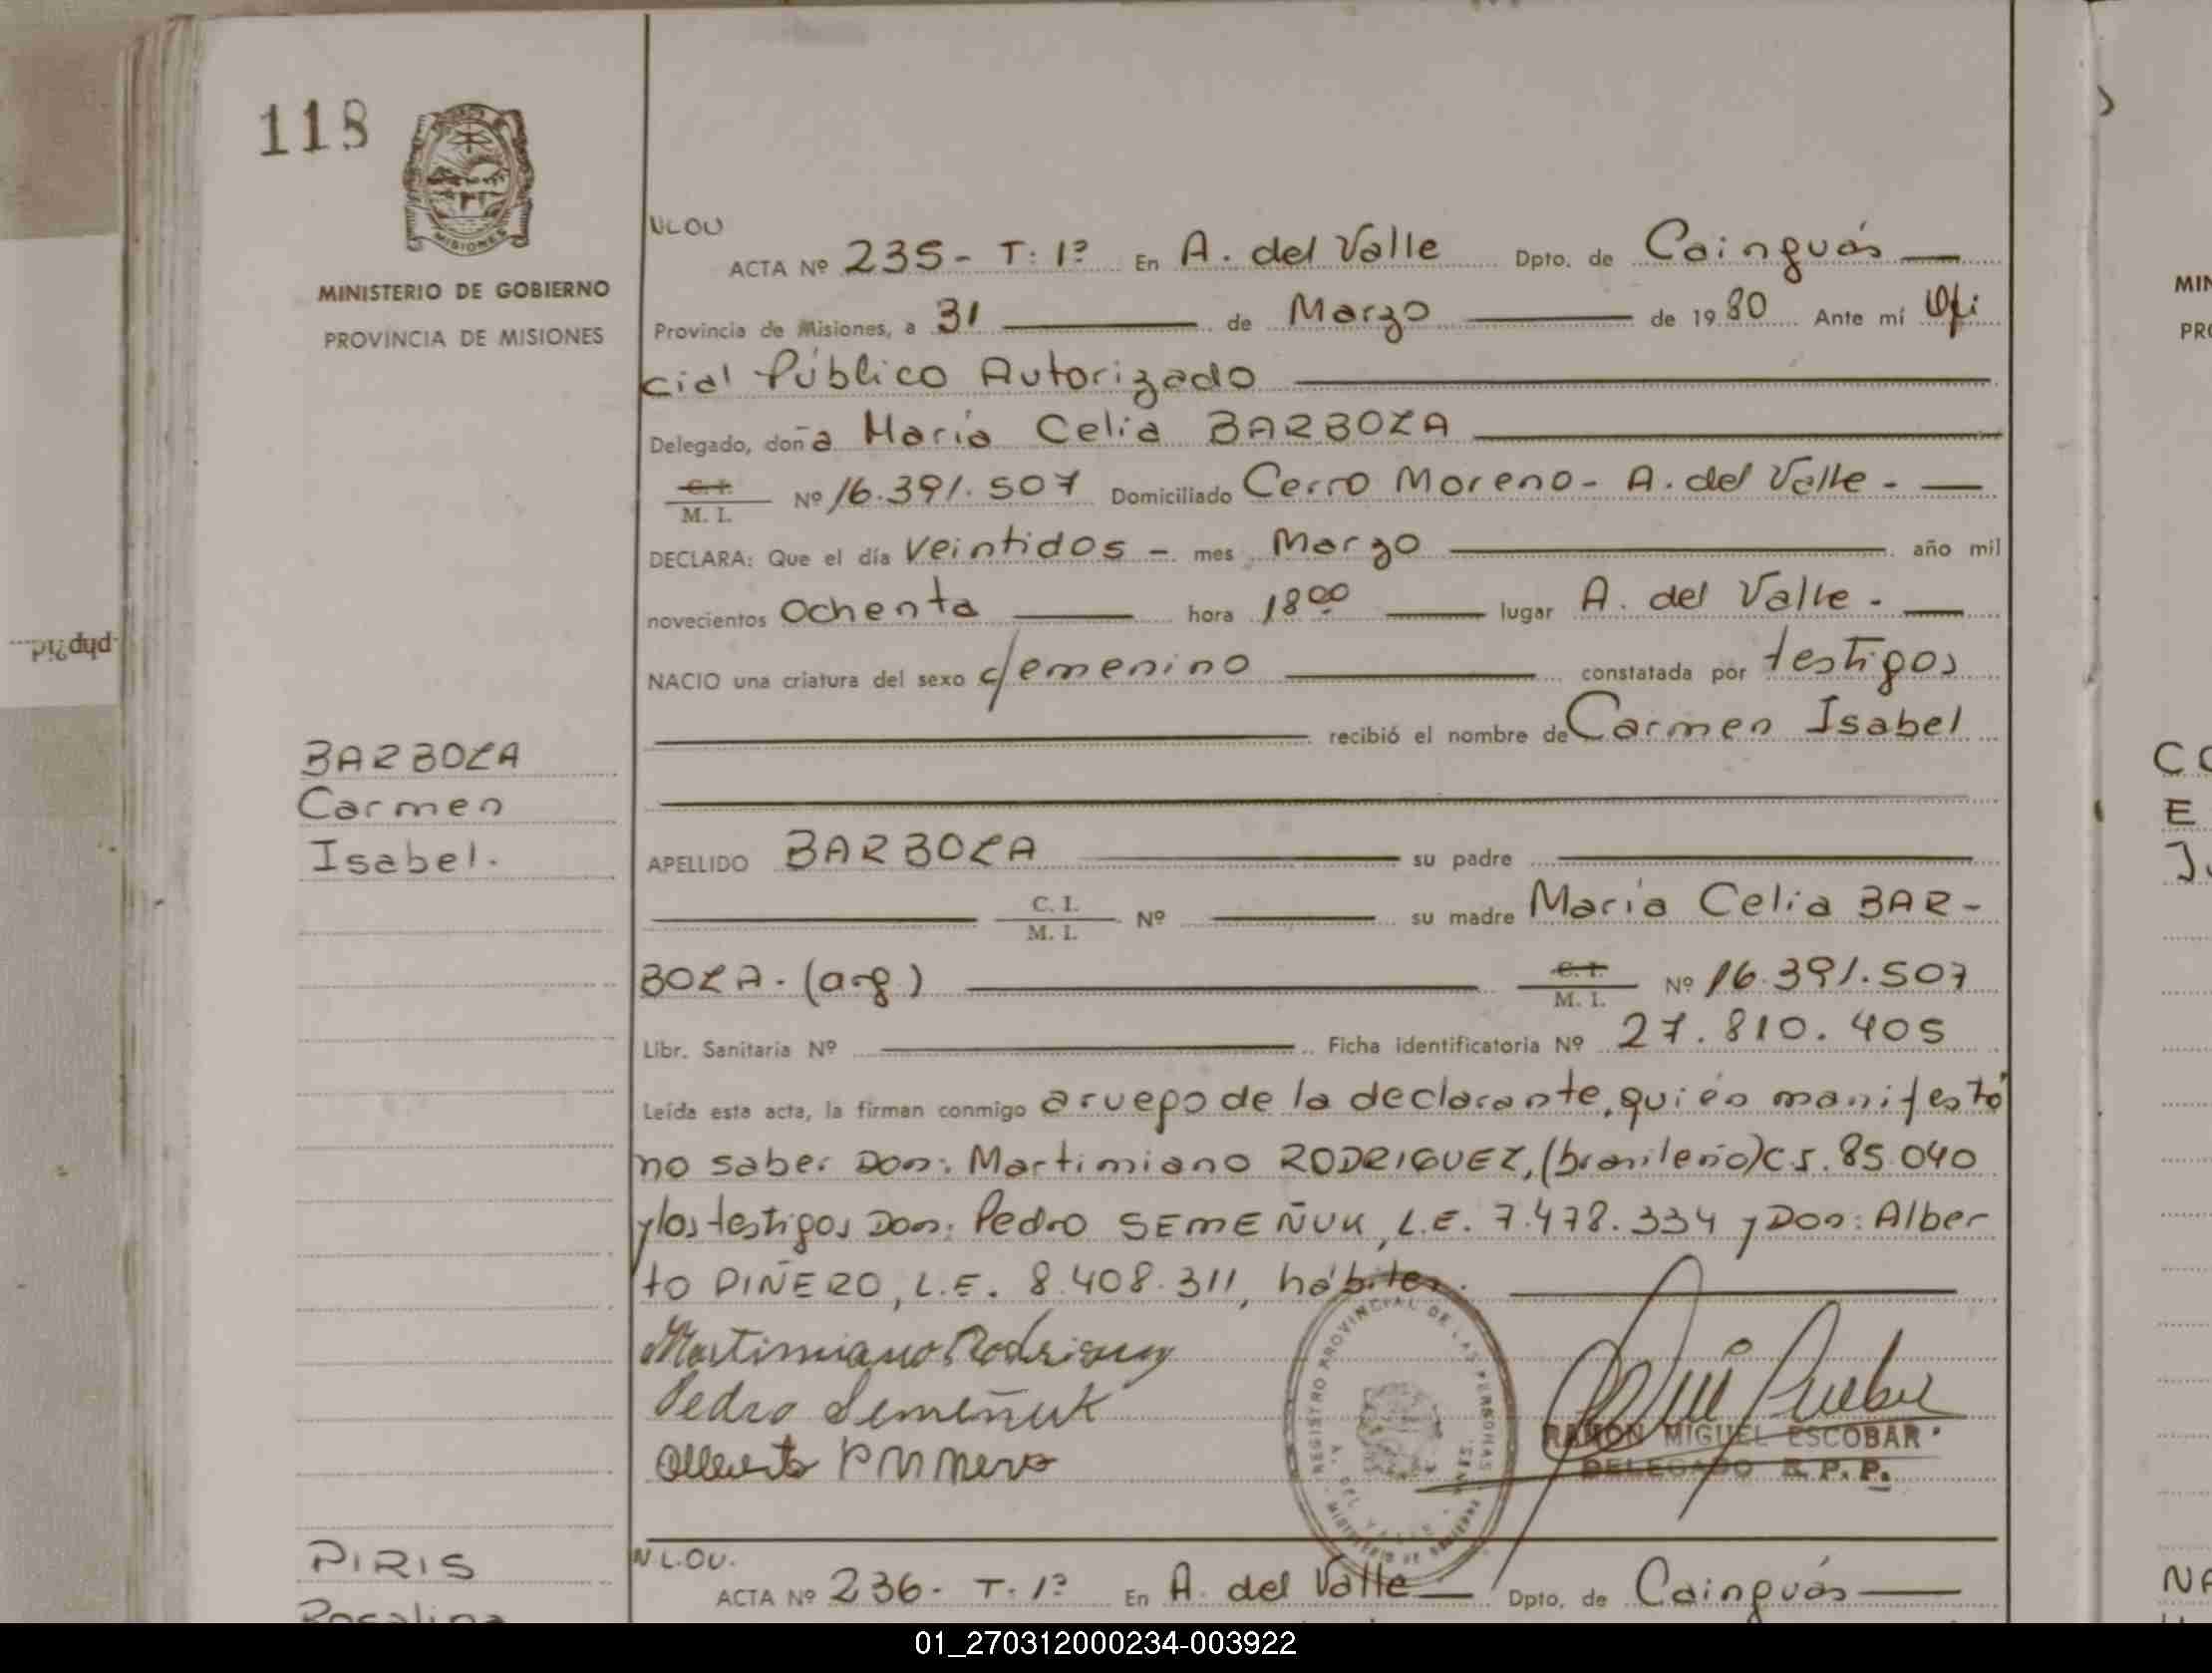 118
MISIONES
MINISTERIO DE GOBIERNO
PROVINCIA DE MISIONES
php?id
BARBOZA
Carmen
Isabel.
PIRIS
Rosalina
NLOU
ACTA Nº 235- T: 1º En A. del Valle Dpto. de Cainguás
Provincia de Misiones, a 31 de Marzo de 1980 Ante mí Ofi
cial Público Autorizado
Delegado, doña María Celia BARBOZA
C. I. / M. I. Nº 16.391.507 Domiciliado Cerro Moreno- A. del Valle -
DECLARA: Que el día Veintidos - mes Marzo año mil
novecientos Ochenta hora 18 00 lugar A. del Valle -
NACIO una criatura del sexo femenino constatada por testigos
recibió el nombre de Carmen Isabel
APELLIDO BARBOZA su padre
C. I. / M. I. Nº su madre María Celia BAR-
BOZA- (arg) C. I. / M. I. Nº 16.391.507
Libr. Sanitaria Nº Ficha identificatoria Nº 27.810.405
Leída esta acta, la firman conmigo a ruego de la declarante, quién manifestó
no saber Don: Martimiano RODRIGUEZ, (brasileño) C.I. 85.040
y los testigos Don: Pedro SEMEÑUK, L.E. 7.478.334 y Don: Alber
to PIÑERO, L.E. 8.408.311, hábiles.
Martimiano Rodriguez
Pedro Semeñuk
Alberto
REGISTRO PROVINCIAL DE LAS PERSONAS
A. DEL VALLE
MINISTERIO DE GOBIERNO
RAMON MIGUEL ESCOBAR
DELEGADO R. P. P.
N.L.OU.
ACTA Nº 236- T. 1º En A. del Valle Dpto. de Cainguás
MIN
PRO
CO
E
NA
01_270312000234-003922